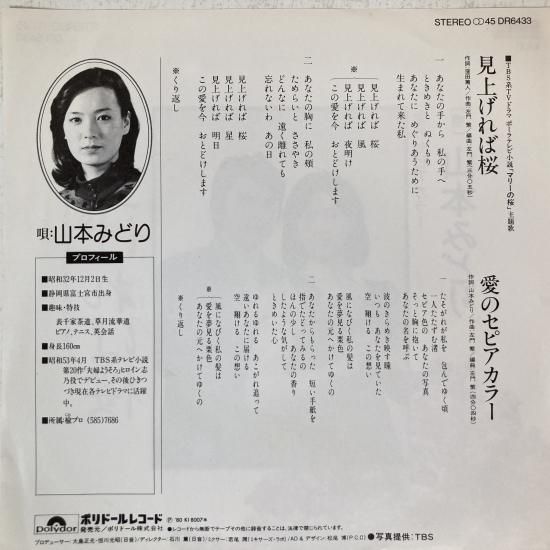 STEREO 45 DR6433
■TBS系TVドラマ ポーラテレビ小説「マリーの桜」主題歌
見上げれば桜
一 あなたの手から 私の手へ
ときめきと ぬくもり
あなたに めぐりあうために
生まれて来た私
※
見上げれば 桜
見上げれば 風
見上げれば 夜明け
この愛を今 おとどけします
二 あなたの胸に 私の頬
ためらいと ささやき
どんなに 遠く離れても
忘れないわ あの日
見上げれば 桜
見上げれば 星
見上げれば 明日
この愛を今 おとどけします
※くり返し
愛のセピアカラー
一 たそがれが私を 包んでゆく頃
一人たたずむ渚
セピア色の あなたの写真
そっと胸に抱いて
あなたの名を呼ぶ
波のきらめき映す瞳
いつもあなたを見ていた
空 翔ける この想い
風になびく私の髪は
愛を夢見る栗色
あなたの元へかけてゆくの
二 あなたからもらった 短い手紙を
指でたどってみるの
ほんの少し あなたの香り
したような気がして
ときめいた心
ゆれるゆれる あこがれ追って
遠いあなたに届ける
空 翔ける この想い
※
風になびく私の髪は
愛を夢見る栗色
あなたの元へかけてゆくの
※くり返し
唄:山本みどり
プロフィール
■昭和32年12月2日生
■静岡県富士宮市出身
■趣味・特技
表千家茶道、草月流華道
ピアノ、テニス、英会話
■身長160cm
■昭和53年4月 TBS系テレビ小説
第20作「夫婦ようそろ」ヒロイン志
乃役でデビュー、その後ひきつ
づき現在各テレビドラマに活躍
中。
■所属・楡プロ (585)7686
Polydor
ポリドールレコード
発売元/ポリドール株式会社
Ⓟ '80 KI 8007※
●レコードから無断でテープその他に録音することは、法律で禁じられています。
●写真提供:TBS
プロデューサー:大島正光・恒川光昭(日音)/ディレクター:石川 薫(日音)/ミクサー:君尾 潤(ミキサーズ・ラボ)/AD & デザイン:松尾 博(P.C.C)